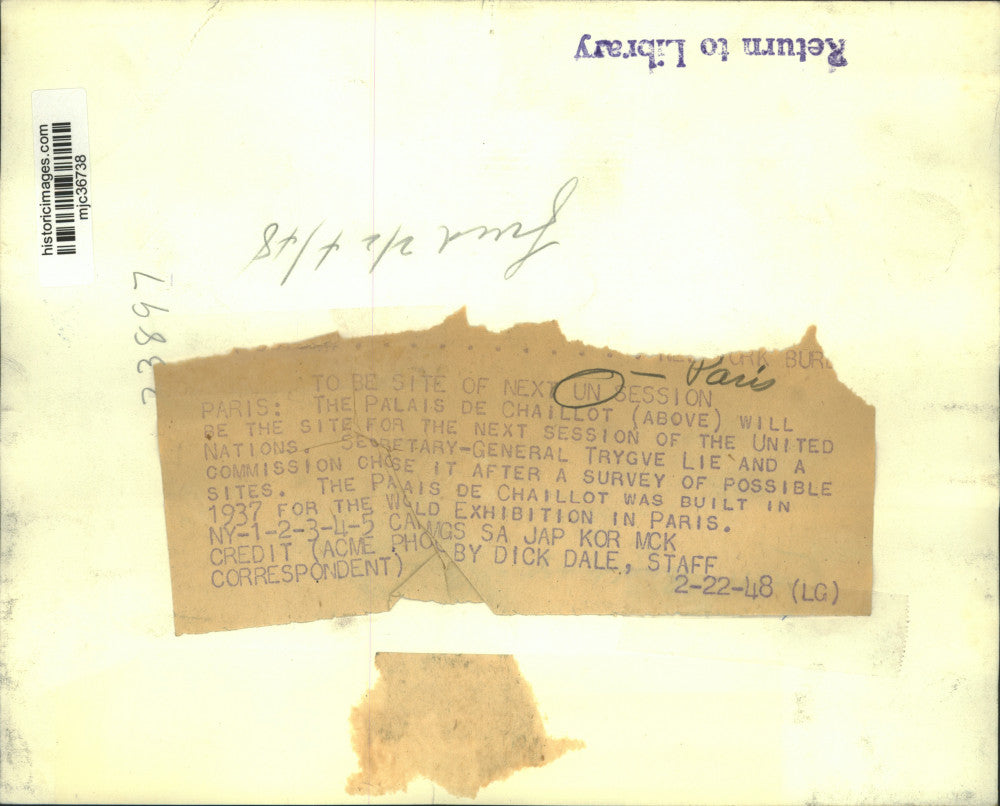 Return to Library
historicimages.com
mjc36738
2/24/48
23897
NEW YORK BUR
— Paris
TO BE SITE OF NEXT UN SESSION
PARIS: THE PALAIS DE CHAILLOT (ABOVE) WILL
BE THE SITE FOR THE NEXT SESSION OF THE UNITED
NATIONS. SECRETARY-GENERAL TRYGVE LIE AND A
COMMISSION CHOSE IT AFTER A SURVEY OF POSSIBLE
SITES. THE PALAIS DE CHAILLOT WAS BUILT IN
1937 FOR THE WORLD EXHIBITION IN PARIS.
NY-1-2-3-4-5 SA JAP KOR MCK
CREDIT (ACME PHOTO BY DICK DALE, STAFF
CORRESPONDENT)
2-22-48 (LG)